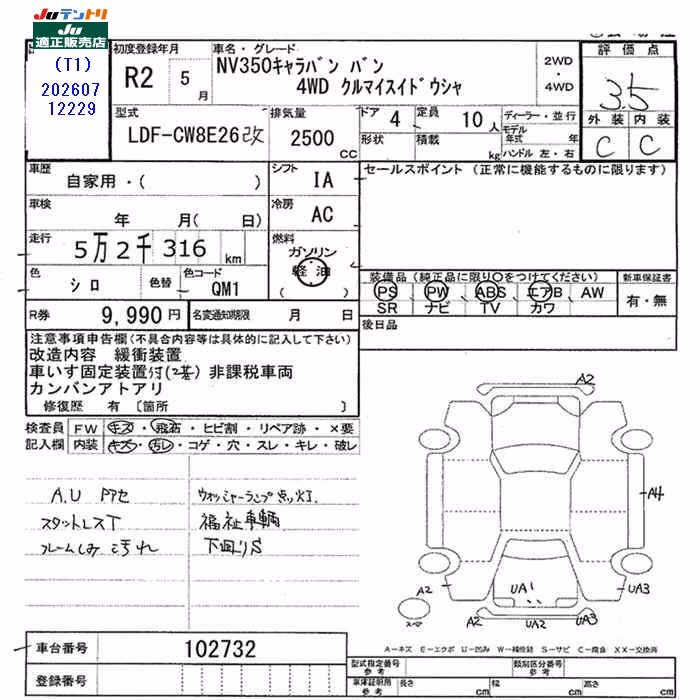 Juテントリ
Ju
適正販売店
(T1)
202607
12229
初度登録年月
R2 5月
車名・グレード
NV350キャラバン バン
4WD クルマイスイドウシャ
2WD
・
4WD
評価点
3.5
外装 内装
C C
型式
LDF-CW8E26改
排気量
2500
CC
ドア 4
形状
定員 10人
積載 kg
ディーラー・並行
モデル年式 年
ハンドル 左・右
車歴
自家用・( )
シフト IA
車検
年 月( 日)
冷房 AC
走行
5万2千316km
燃料
ガソリン
軽油
( )
色
シロ
色替
色コード
QM1
R券 9,990円
名変通知期限 月 日
セールスポイント (正常に機能するものに限ります)
装備品(純正品に限り○をつけてください)
PS、PW、ABS、エアB、AW
SR ナビ TV カワ
新車保証書
有・無
後日品
注意事項申告欄(不具合内容等は具体的に記入して下さい)
改造内容 緩衝装置
車いす固定装置付(2基) 非課税車両
カンバンアトアリ
修復歴 有〔箇所 〕
検査員 FW キズ・飛石・ヒビ割・リペア跡・×要
記入欄 内装 キズ・汚レ・コゲ・穴・スレ・キレ・破レ
A.U アセ
スタットレスT
フレームしみ 汚れ
ウオッシャーランプ点灯
福祉車輌
下回りS
A2
A4
A2
UA1
UA3
A2
UA2
UA3
スペ
車台番号 102732
登録番号
A-キズ E-エクボ U-凹み W-補修跡 S-サビ C-腐食 XX-交換済
型式指定番号
参考
類別区分番号
参考
車庫証明用
参考
長さ cm 幅 cm 高さ cm